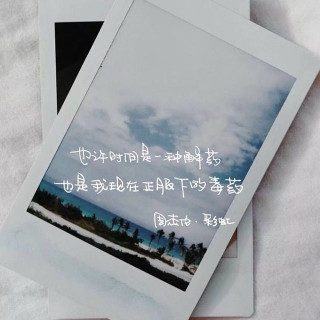 也许时间是一种解药
也是我现在正服下的毒药
周杰伦·彩虹